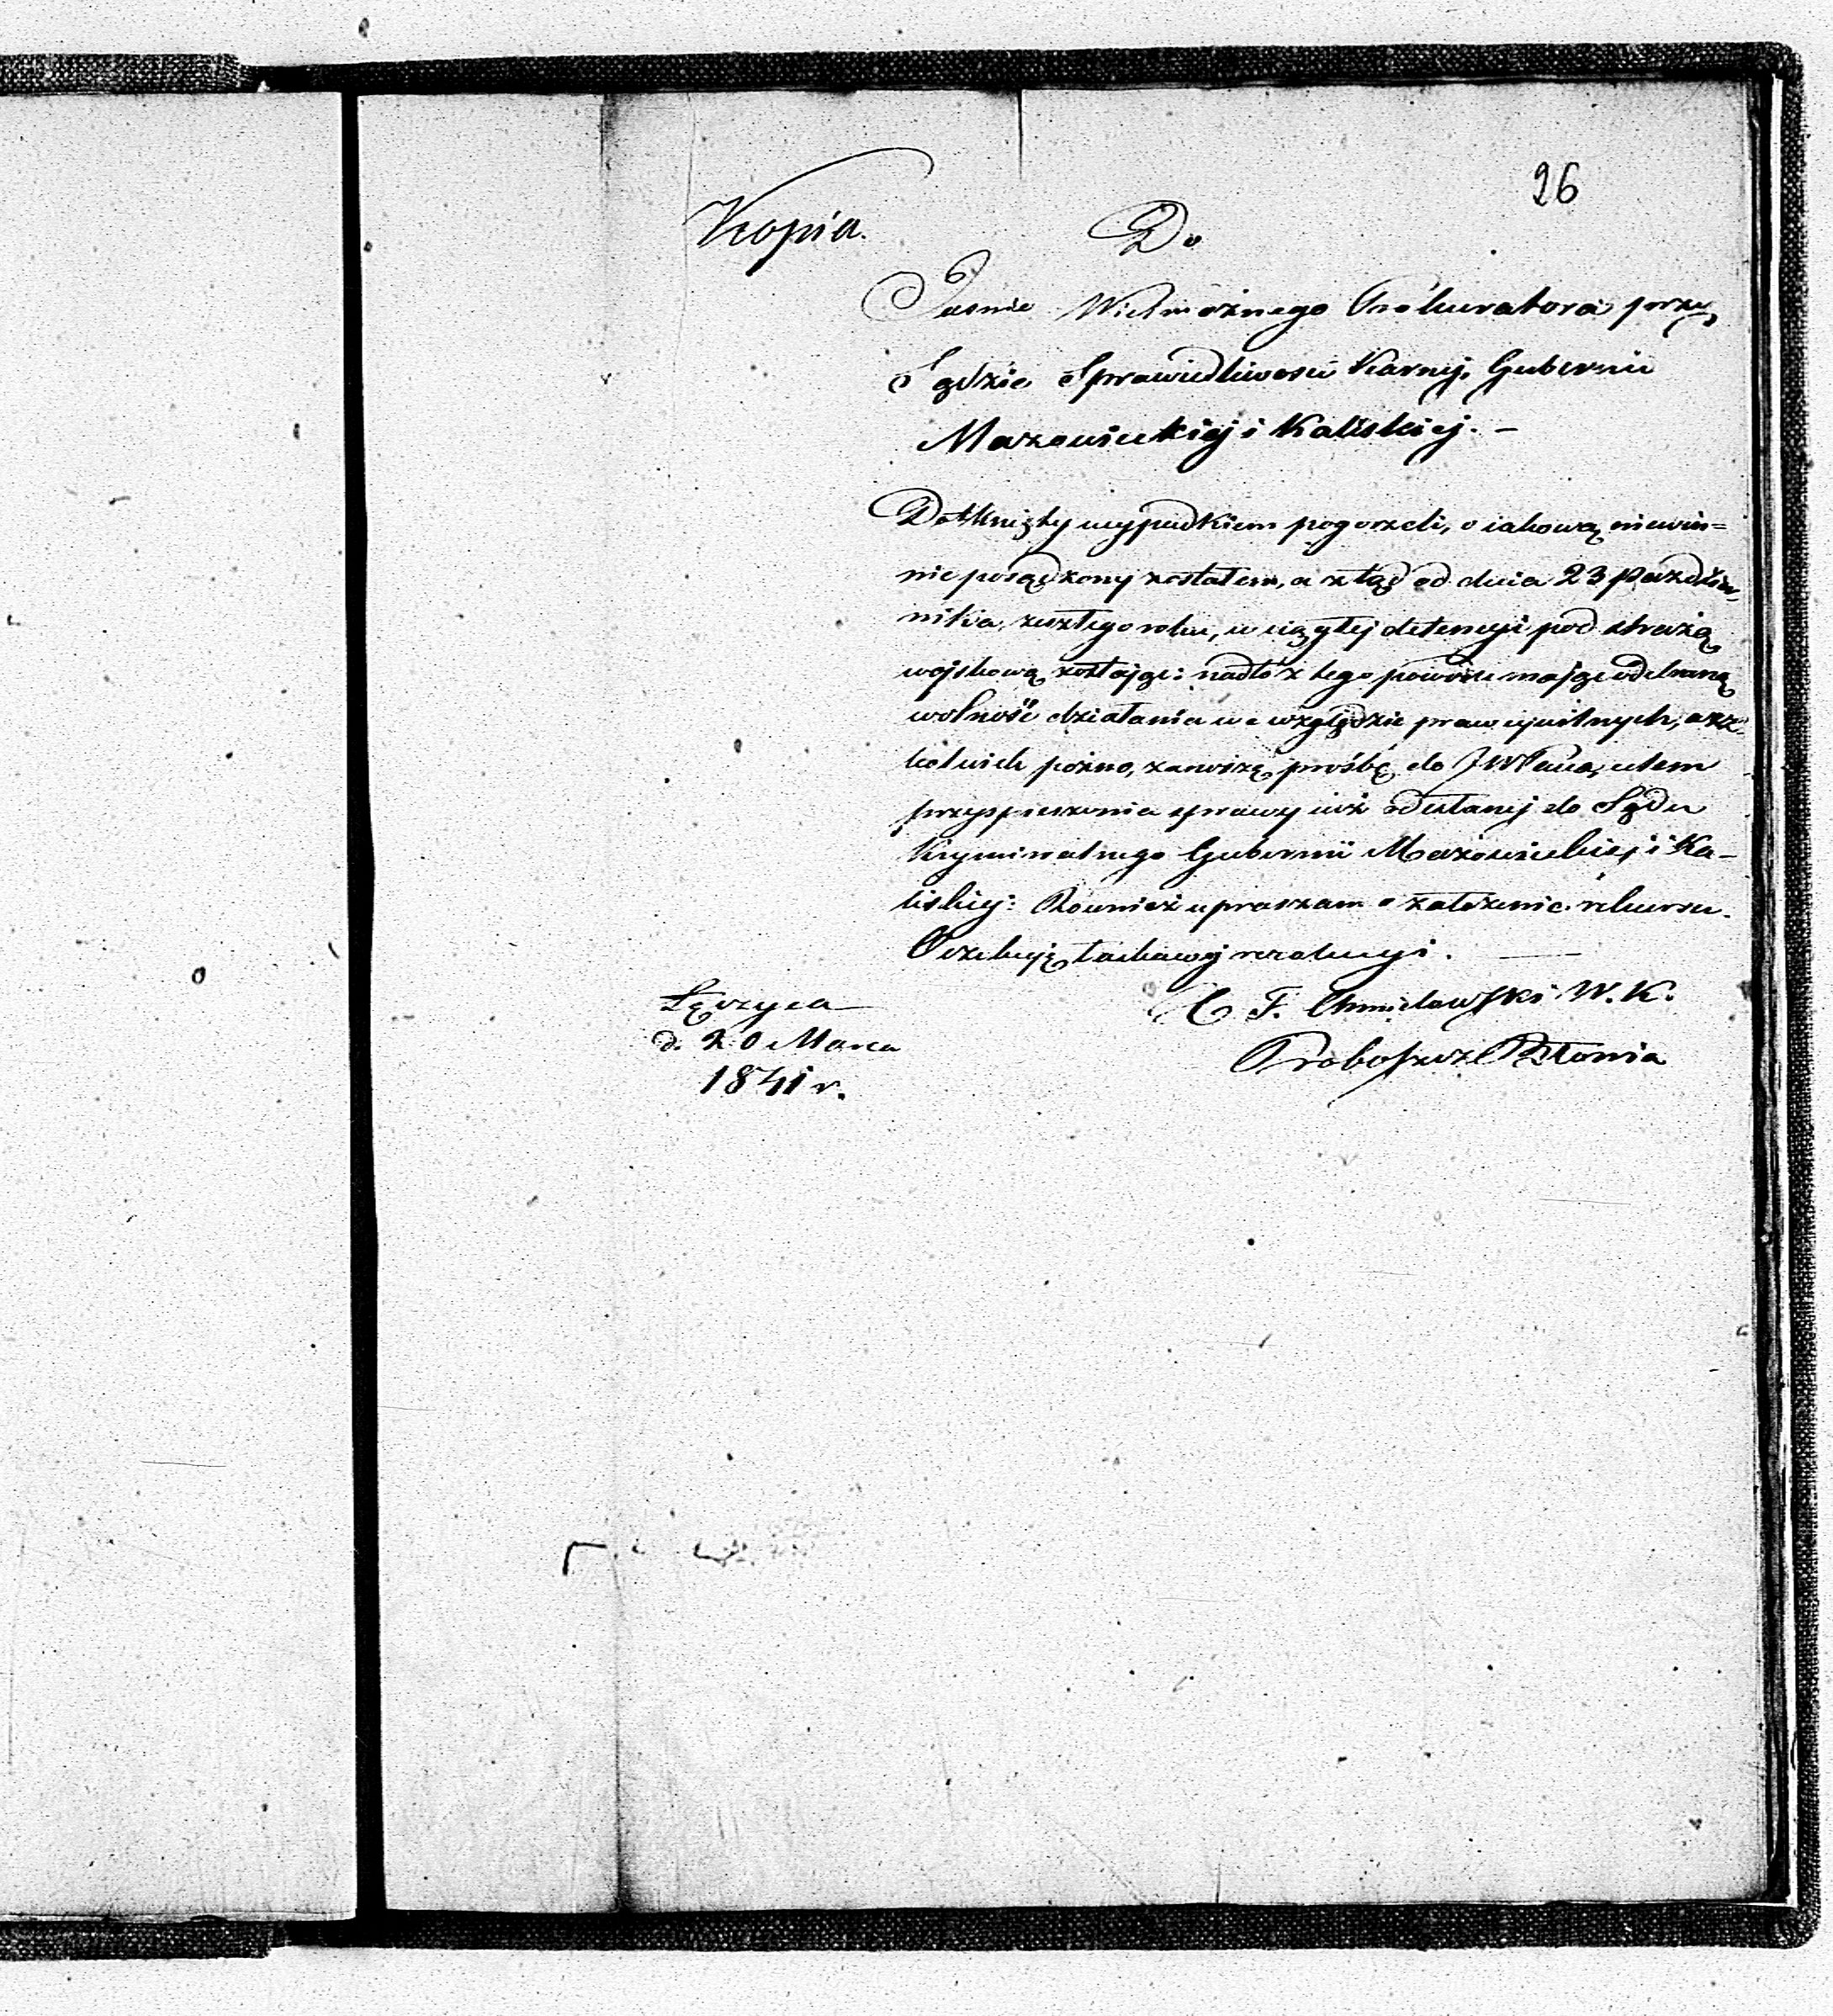 26
Kopia.
Do
Jasnie Wielmożnego Prokuratora przy
Sądzie Sprawiedliwości Karnej, Gubernii
Mazowieckiej i Kaliskiej. –
Dotknięty wypadkiem pogorzeli, o iakową niewin=
nie posądzony zostałem, a ztąd od dnia 23 Paździer,
nika, zeszłego roku, w ciągłej detencyi pod strażą
wojskową zostając: nadto z tego powodu mając odebraną
wolność działania we względzie praw cywilnych, acz,
kolwiek pożno, zanoszę prośbę do JWPana, celem
przyspieszenia sprawy iuż odesłanej do Sądu
Kryminalnego Gubernii Mazowieckiej i Ka–
liskiej: Rownież upraszam o założenie rekursu.
Oczekuję łaskawej rezolucyi. —
X. F. Chmielawski W. K.
Proboszcz Błonia
Łęczyca
d. 20 Marca
1841 r.